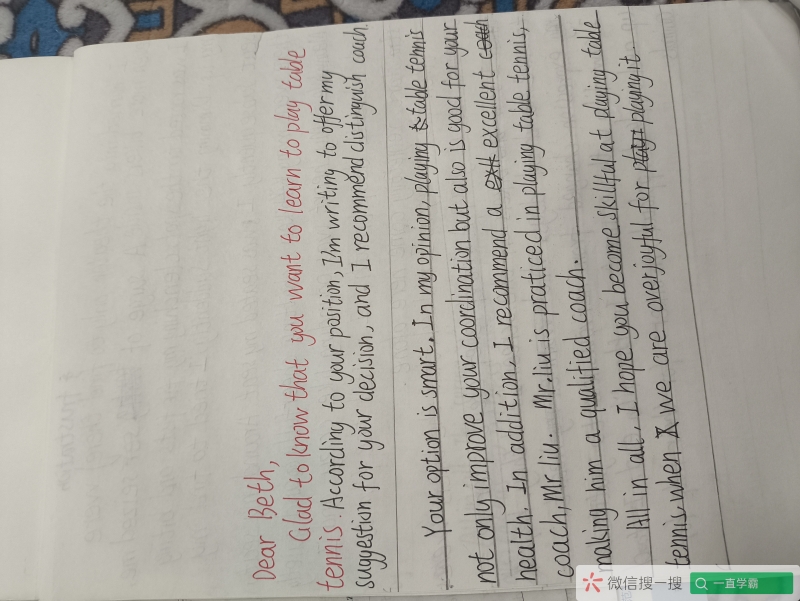 Dear Beth,
Glad to know that you want to learn to play table
tennis. According to your position, I'm writing to offer my
suggestion for your decision, and I recommend distinguish coach.
Your option is smart. In my opinion, playing table tennis
not only improve your coordination but also is good for your
health. In addition, I recommend a excellent
coach, Mr liu. Mr.liu is praticed in playing table tennis,
making him a qualified coach.
All in all, I hope you become skillful at playing table
tennis, when we are overjoyful for playing it.
微信搜一搜
一直学霸